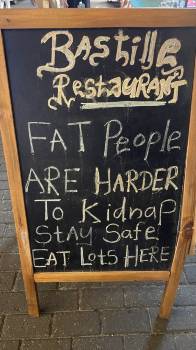 Bastille
Restaurant
FAT People
ARE HARDER
To Kidnap
Stay Safe
EAT Lots HERE